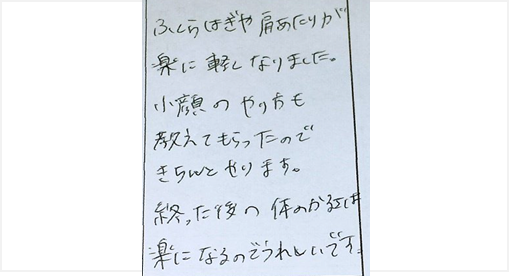 ふくらはぎや肩あたりが
楽に軽くなりました。
小顔のやり方も
教えてもらったので
きちんとやります。
終った後の体のかるさは
楽になるのでうれしいです。